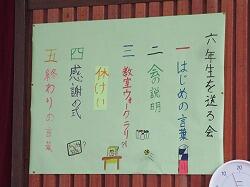 六年生を送る会
一 はじめの言葉
二 会の説明
三 教室ウォークラリー
休けい
四 感謝の式
五 終わりの言葉